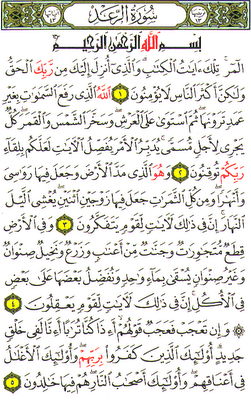 سُورَةُ الرَّعْدِ
بِسْمِ اللَّهِ الرَّحْمَٰنِ الرَّحِيمِ
الٓمٓر تِلْكَ ءَايَٰتُ الْكِتَٰبِ وَالَّذِىٓ أُنزِلَ إِلَيْكَ مِن رَّبِّكَ الْحَقُّ
وَلَٰكِنَّ أَكْثَرَ النَّاسِ لَا يُؤْمِنُونَ ١ اللَّهُ الَّذِى رَفَعَ السَّمَٰوَٰتِ بِغَيْرِ
عَمَدٍ تَرَوْنَهَا ثُمَّ اسْتَوَىٰ عَلَى الْعَرْشِ وَسَخَّرَ الشَّمْسَ وَالْقَمَرَ كُلٌّ
يَجْرِى لِأَجَلٍ مُّسَمًّى يُدَبِّرُ الْأَمْرَ يُفَصِّلُ الْءَايَٰتِ لَعَلَّكُم بِلِقَآءِ
رَبِّكُمْ تُوقِنُونَ ٢ وَهُوَ الَّذِى مَدَّ الْأَرْضَ وَجَعَلَ فِيهَا رَوَٰسِىَ
وَأَنْهَٰرًا وَمِن كُلِّ الثَّمَرَٰتِ جَعَلَ فِيهَا زَوْجَيْنِ اثْنَيْنِ يُغْشِى الَّيْلَ
النَّهَارَ إِنَّ فِى ذَٰلِكَ لَءَايَٰتٍ لِّقَوْمٍ يَتَفَكَّرُونَ ٣ وَفِى الْأَرْضِ
قِطَعٌ مُّتَجَٰوِرَٰتٌ وَجَنَّٰتٌ مِّنْ أَعْنَٰبٍ وَزَرْعٌ وَنَخِيلٌ صِنْوَانٌ
وَغَيْرُ صِنْوَانٍ يُسْقَىٰ بِمَآءٍ وَٰحِدٍ وَنُفَضِّلُ بَعْضَهَا عَلَىٰ بَعْضٍ
فِى الْأُكُلِ إِنَّ فِى ذَٰلِكَ لَءَايَٰتٍ لِّقَوْمٍ يَعْقِلُونَ
٤ ۞ وَإِن تَعْجَبْ فَعَجَبٌ قَوْلُهُمْ أَءِذَا كُنَّا تُرَٰبًا أَءِنَّا لَفِى خَلْقٍ
جَدِيدٍ أُو۟لَٰٓئِكَ الَّذِينَ كَفَرُوا۟ بِرَبِّهِمْ وَأُو۟لَٰٓئِكَ الْأَغْلَٰلُ
فِىٓ أَعْنَاقِهِمْ وَأُو۟لَٰٓئِكَ أَصْحَٰبُ النَّارِ هُمْ فِيهَا خَٰلِدُونَ ٥